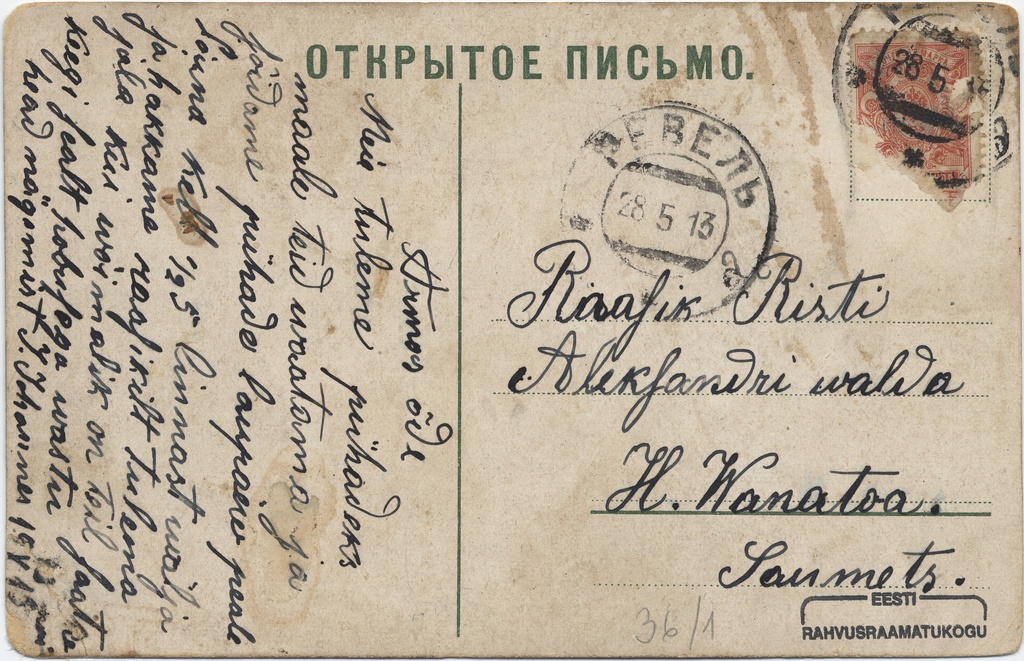 ОТКРЫТОЕ ПИСЬМО.
28 5 13
РЕВЕЛЬ
28 5 13
Armas õde
Meie tuleme pühadeks
maale teid waatama ja
sõidame pühade laupäew peale
lõina kell ½5 linnast wälja
ja hakkame raasikult tulema
jala kis wõimalik on teil saatke
keegi sealt hobusega wastu saat
head nägemist J. Johannes 19 V 13
Raasik Risti
Aleksandri walda
H. Wanatoa.
Saumets.
36/1
EESTI
RAHVUSRAAMATUKOGU